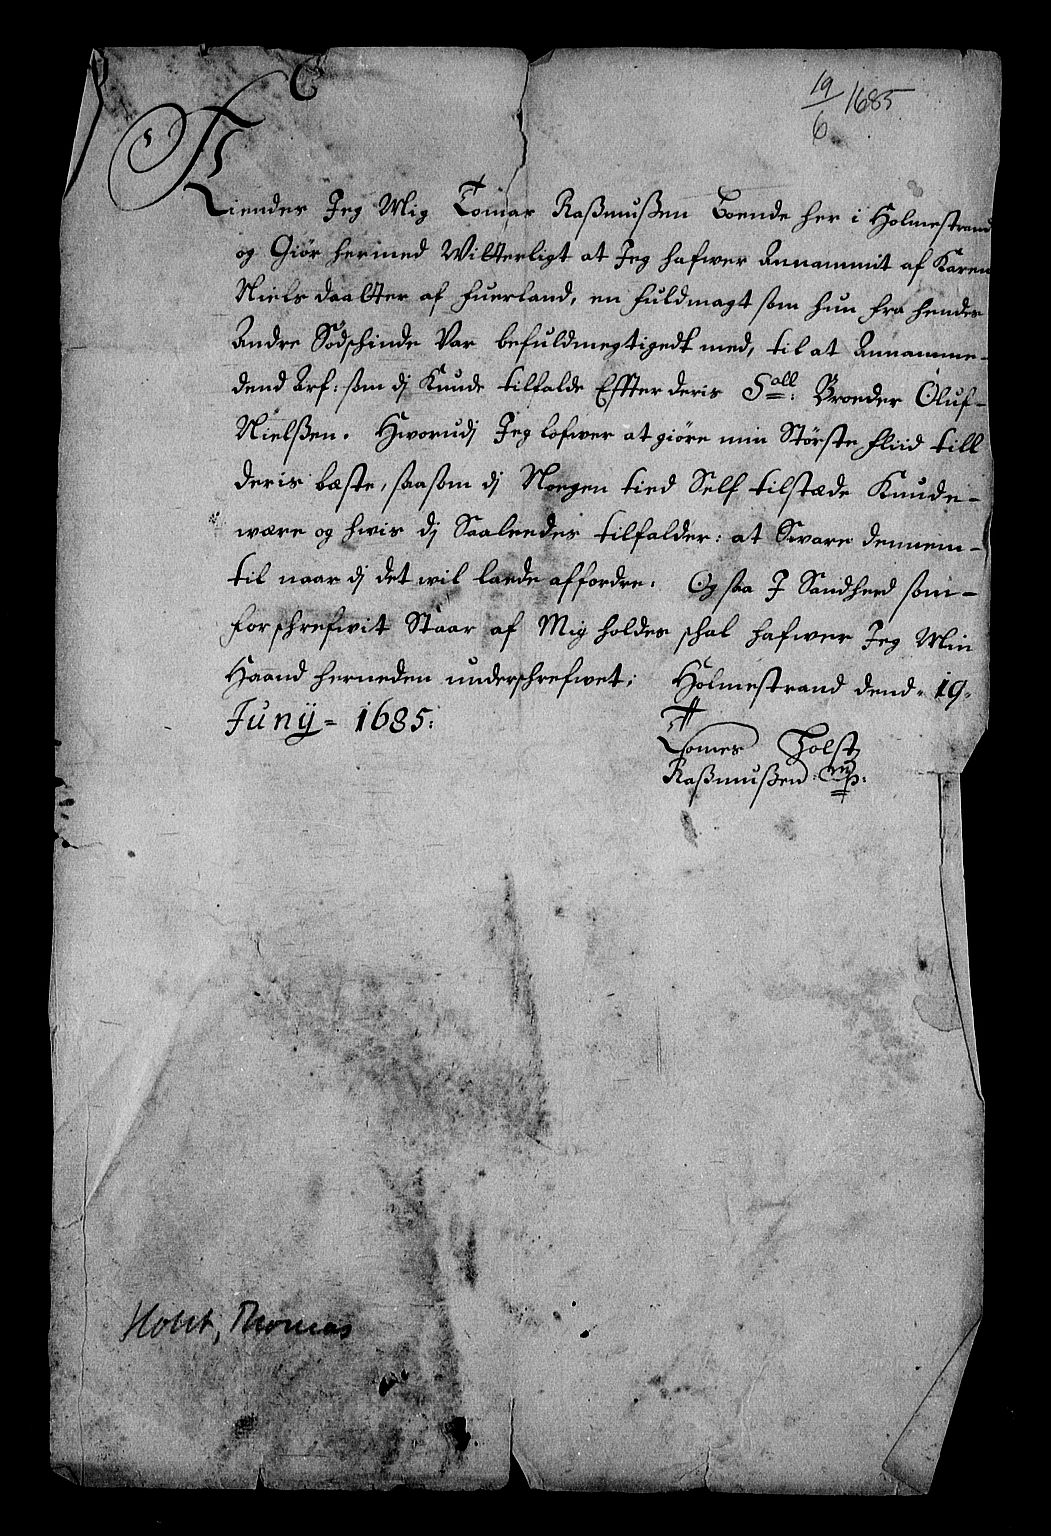 19/6 1685
Kiendes Jeg Mig Tomas Raßmußen Boende her i Holmestrand
og Giør hermed Witterligt at Jeg hafwer Annammit af Karen
Niels daatter af Fuerland, en fuldmagt som hun fra hendes
Andre Sødschinde Var befuldmegtigedt med, til at Annamme-
dend Arf: som dj Kunde tilfalde Effter deris Sall: Broeder Oluf-
Nielßen. Hworudj Jeg lofwer at giøre min Største fliid till
deris bæste, saasom dj Noegen tied Self tilstæde Kunde-
være og hwis dj Saaleedes tilfalder: at Sware dennem-
til naar dj det wil lade affordre. Og saa J Sandhed som-
forschrefwit Staar af Mig holdes schal hafwer Jeg Min
Haand herneden underschrefwet; Holmestrand dend. 19.
Junij- 1685:
Tomes Holst
Raßmußen: mp:
Holst, Thomas